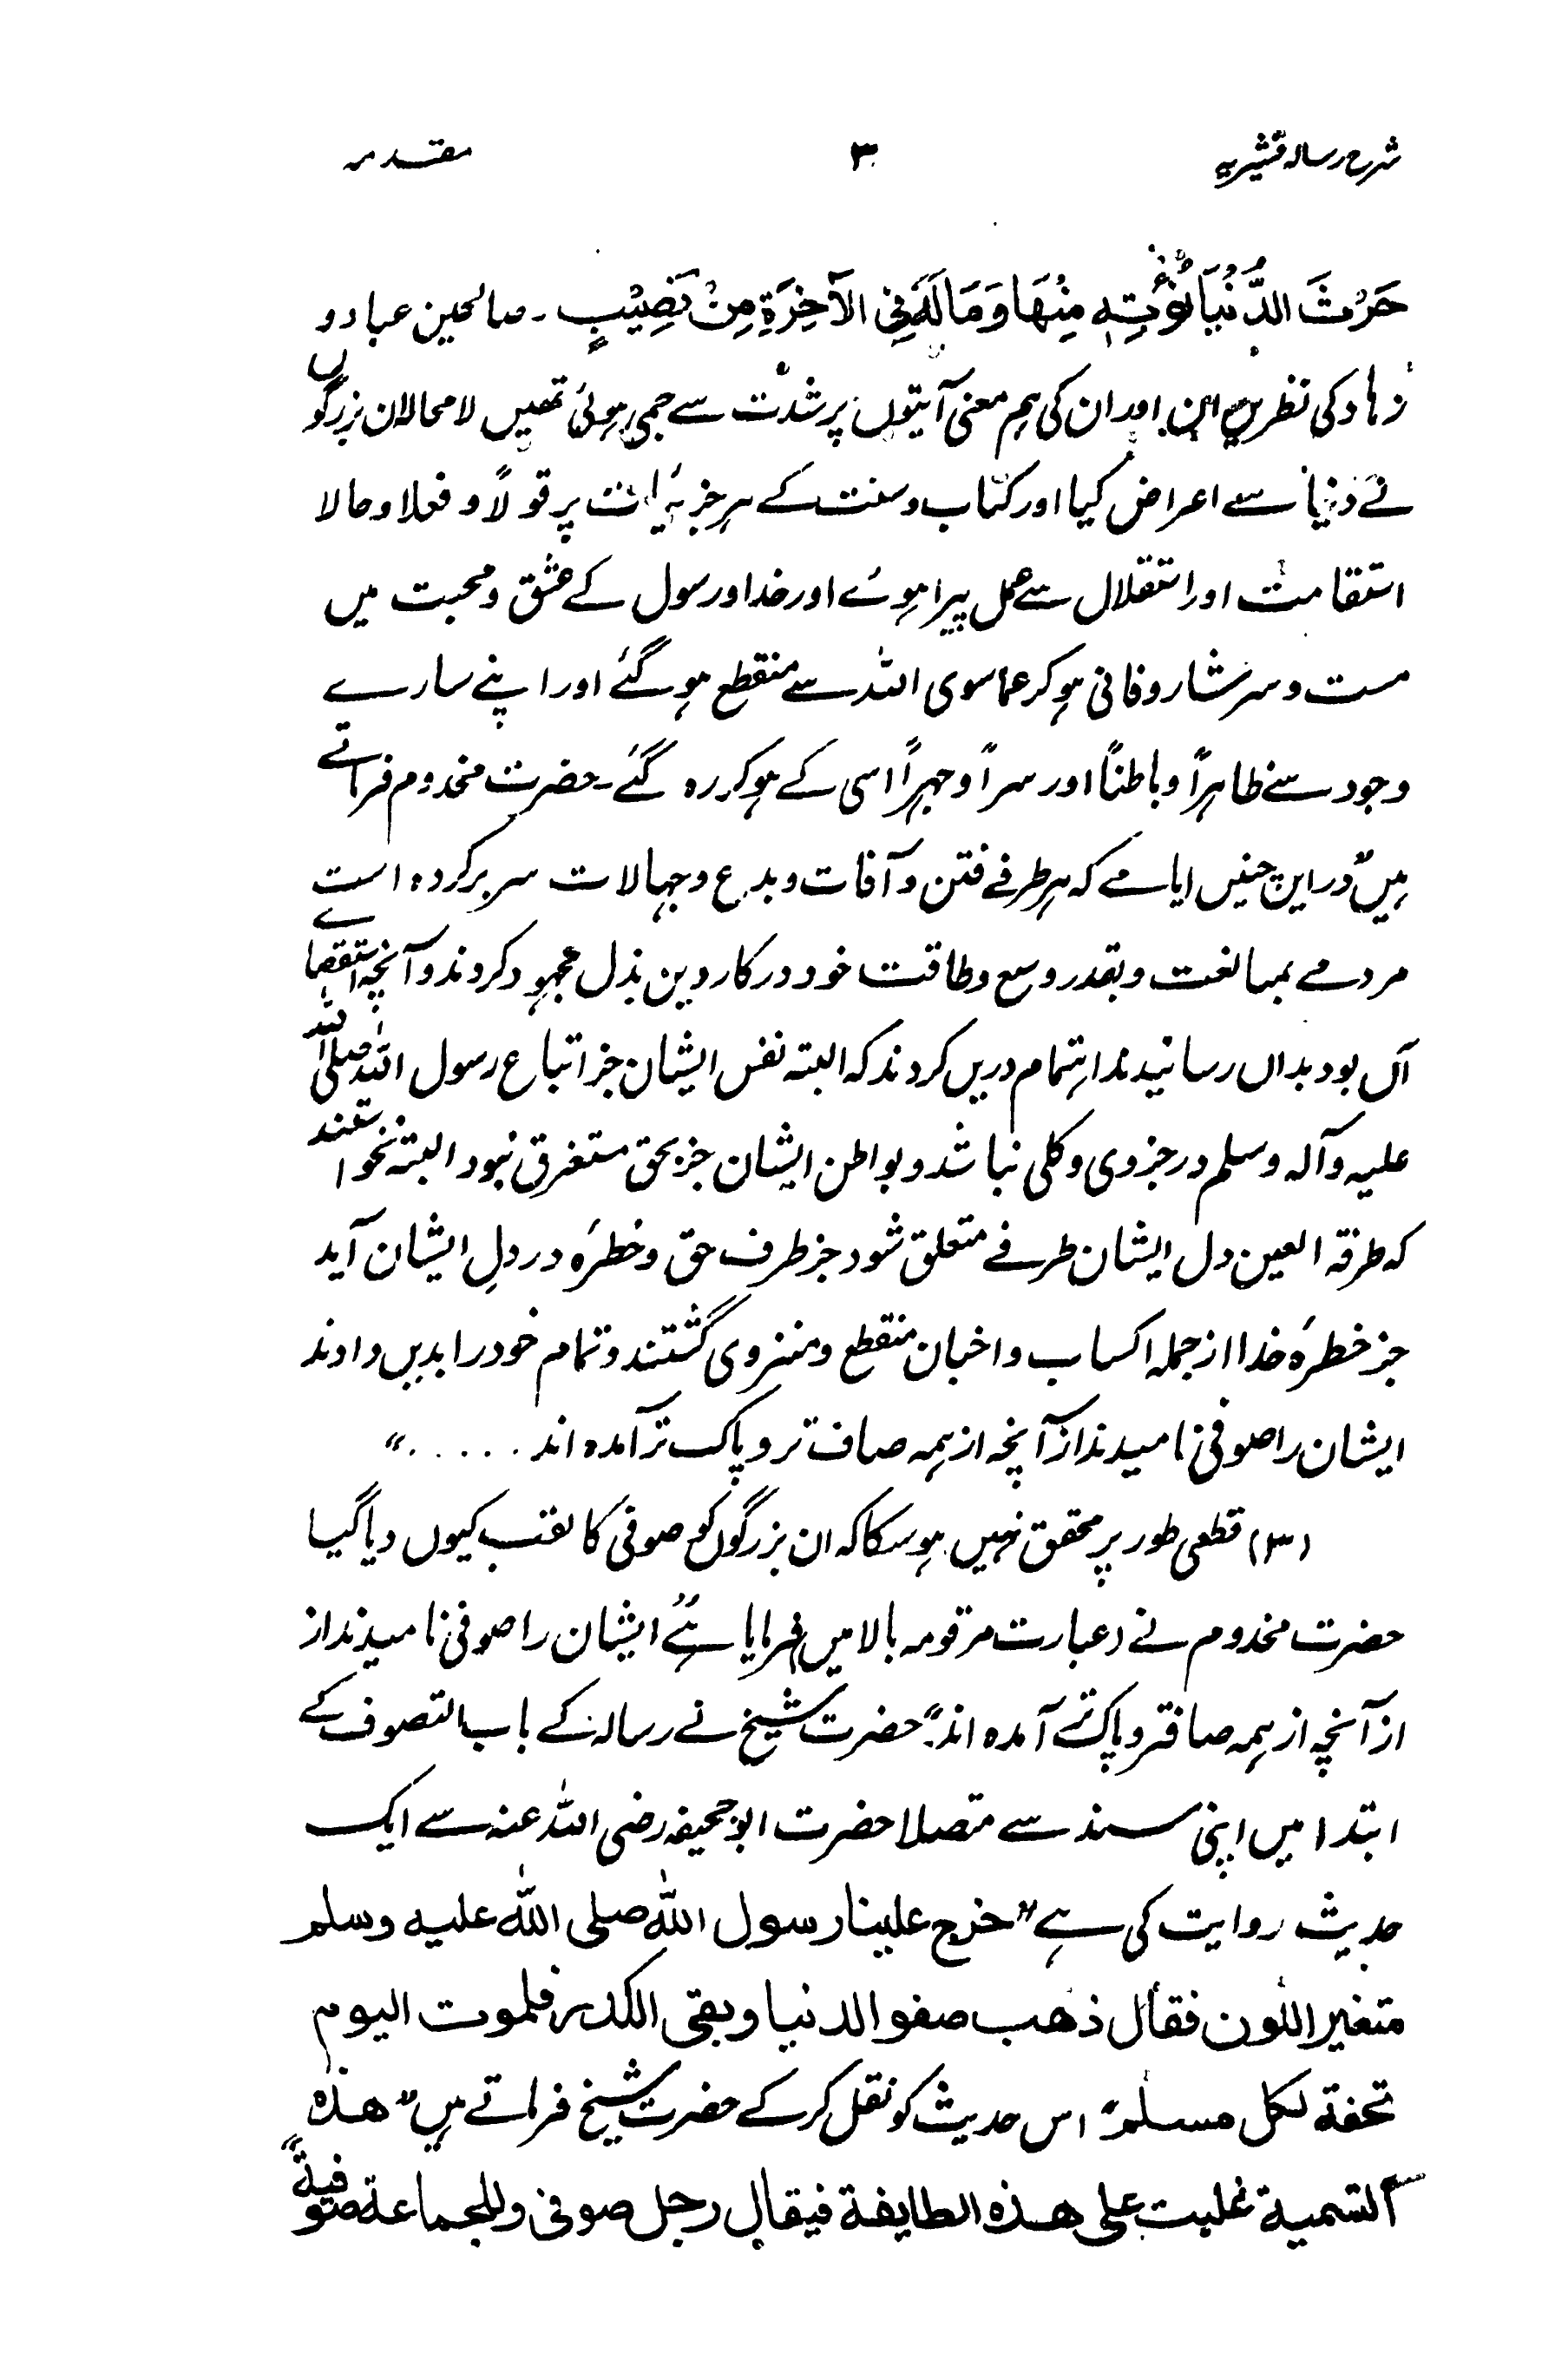 شرح رسالہ قشیریہ ۳ مقدمہ
حَرْثَ الدُّنْيَا نُؤْتِهٖ مِنْهَا وَمَا لَهٗ فِي الْآخِرَةِ مِنْ نَصِيْبٍ ۔ صالحین عباد و
زہاد کی نظریں ان اور ان کی ہم معنی آیتوں پر شدّت سے جمی ہوئی تھیں لا محالا ان بزرگوں
نے دنیا سے اعراض کیا اور کتاب و سنت کے ہر جزئیات پر قولاً و فعلا و حالا
استقامت اور استقلال سے عمل پیرا ہوئے اور خدا و رسول کے عشق و محبت میں
مست و سرشار و فانی ہو کر عما سوی اللہ سے منقطع ہو گئے اور اپنے سارے
وجود سے ظاہراً و باطناً اور سراً و جہراً اسی کے ہو کر رہ گئے۔ حضرت مخدوم فرماتے
ہیں ”در این چنیں ایامے کہ ہر طرفے فتن و آفات و بدع و جہالات سر بر کردہ است
مردمے بمبالغت و بقدر وسع و طاقت خود در کار دین بذل مجہود کردند و آنچہ استقصاے
آں بود بداں رسانیدند اہتمام دریں کردند کہ البتہ نفس ایشان جز اتباع رسول اللہ صلی اللہ
علیہ وآلہ وسلم در جزوی و کلی نباشد و بواطن ایشان جز بحق مستغرق نبود البتہ نخواستند
کہ طرفۃ العین دل ایشان طرفے متعلق شود جز طرف حق و خطرۂ در دلِ ایشان آید
جز خطرۂ خدا از جملہ اکساب و اخبان منقطع و منزوی گشتند و تمام خود را بدیں دادند
ایشان را صوفی نامیدند از آنچہ از ہمہ صاف تر و پاک تر آمدہ اند ......“
(۳) قطعی طور پر محقق نہیں ہو سکا کہ ان بزرگوں کو صوفی کا لقب کیوں دیا گیا
حضرت مخدوم نے (عبارت مرقومہ بالا میں) فرمایا ہے ”ایشان را صوفی نامیدند از
از آنچہ از ہمہ صافتر و پاک تر آمدہ اند“۔ حضرت شیخ نے رسالہ کے باب التصوف کے
ابتدا میں اپنی سند سے متصلا حضرت ابو جحیفہ رضی اللہ عنہ سے ایک
حدیث روایت کی ہے ”خرج علينا رسول الله صلى الله عليه وسلم
متغير اللون فقال ذهب صفو الدنيا وبقى الكدر فلموت اليوم
تحفة لكل مسلم“ اس حدیث کو نقل کر کے حضرت شیخ فرماتے ہیں ”هذه
التسمية غلبت على هذه الطايفة فيقال رجل صوفي وللجماعة صوفية“